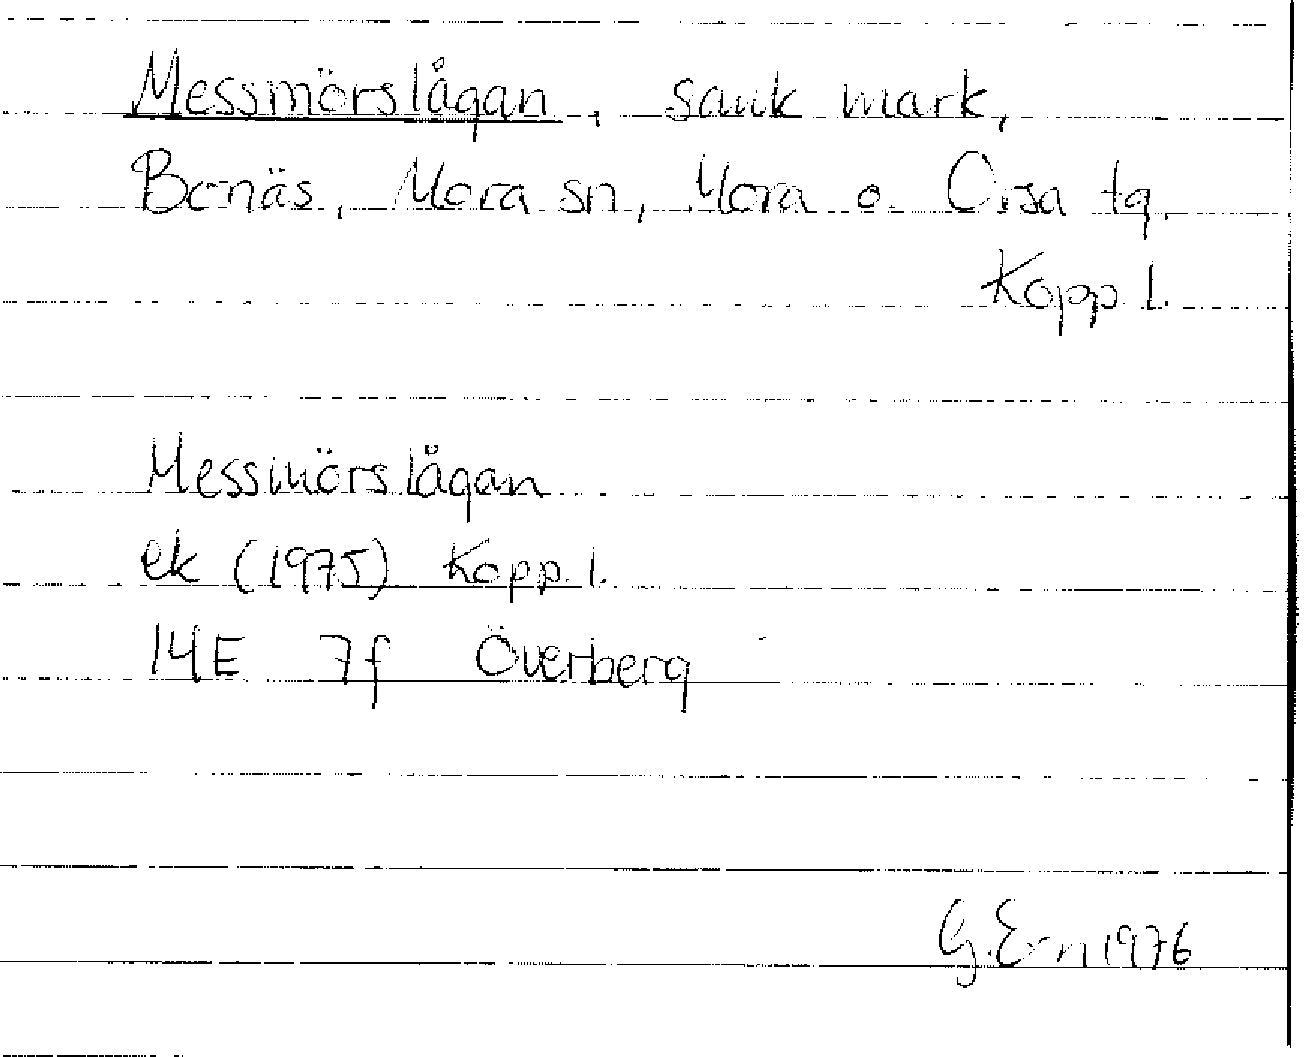 Messmörslågan, sank mark,
Bonäs, Mora sn, Mora o. Orsa tg.
Kopp. l.
Messmörslågan
ek (1975) Kopp. l.
14E 7f Överberg
G. Ern 1976